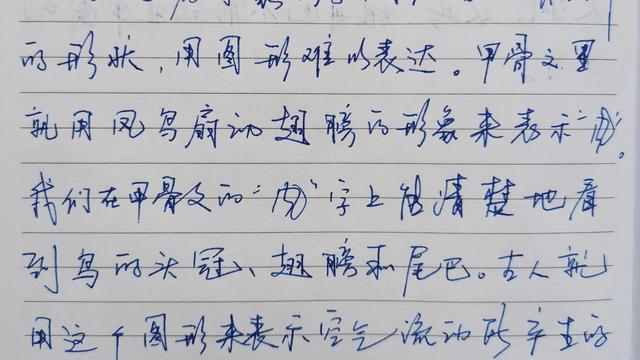 的形状,用图形难以表达。甲骨文里
就用凤鸟扇动翅膀的形象来表示“风”。
我们在甲骨文的“风”字上能清楚地看
到鸟的头冠、翅膀和尾巴。古人就
用这个图形来表示空气流动所产生的